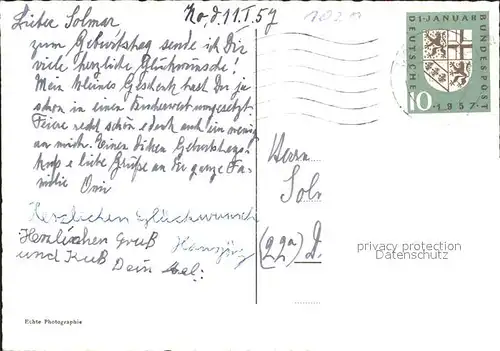 Lieber Solmar
No, d. 11.I.57
zum Geburtstag sende ich Dir
viele herzliche Glückwünsche!
Mein kleines Geschenk hast Du ja
schon in einen umgesetzt.
Feiere recht schön & denk auch ein wenig
an mich. Einen dicken Geburtstags-
& liebe Grüße an die ganze Fa-
milie Omi
Herzlichen Glückwunsch
Hansjörg
Herzlichen Gruß
und Kuß
Dein
Echte Photographie
1. JANUAR
DEUTSCHE
BUNDESPOST
10
1957
Herrn
Sol
(22a) D
privacy protection
Datenschutz